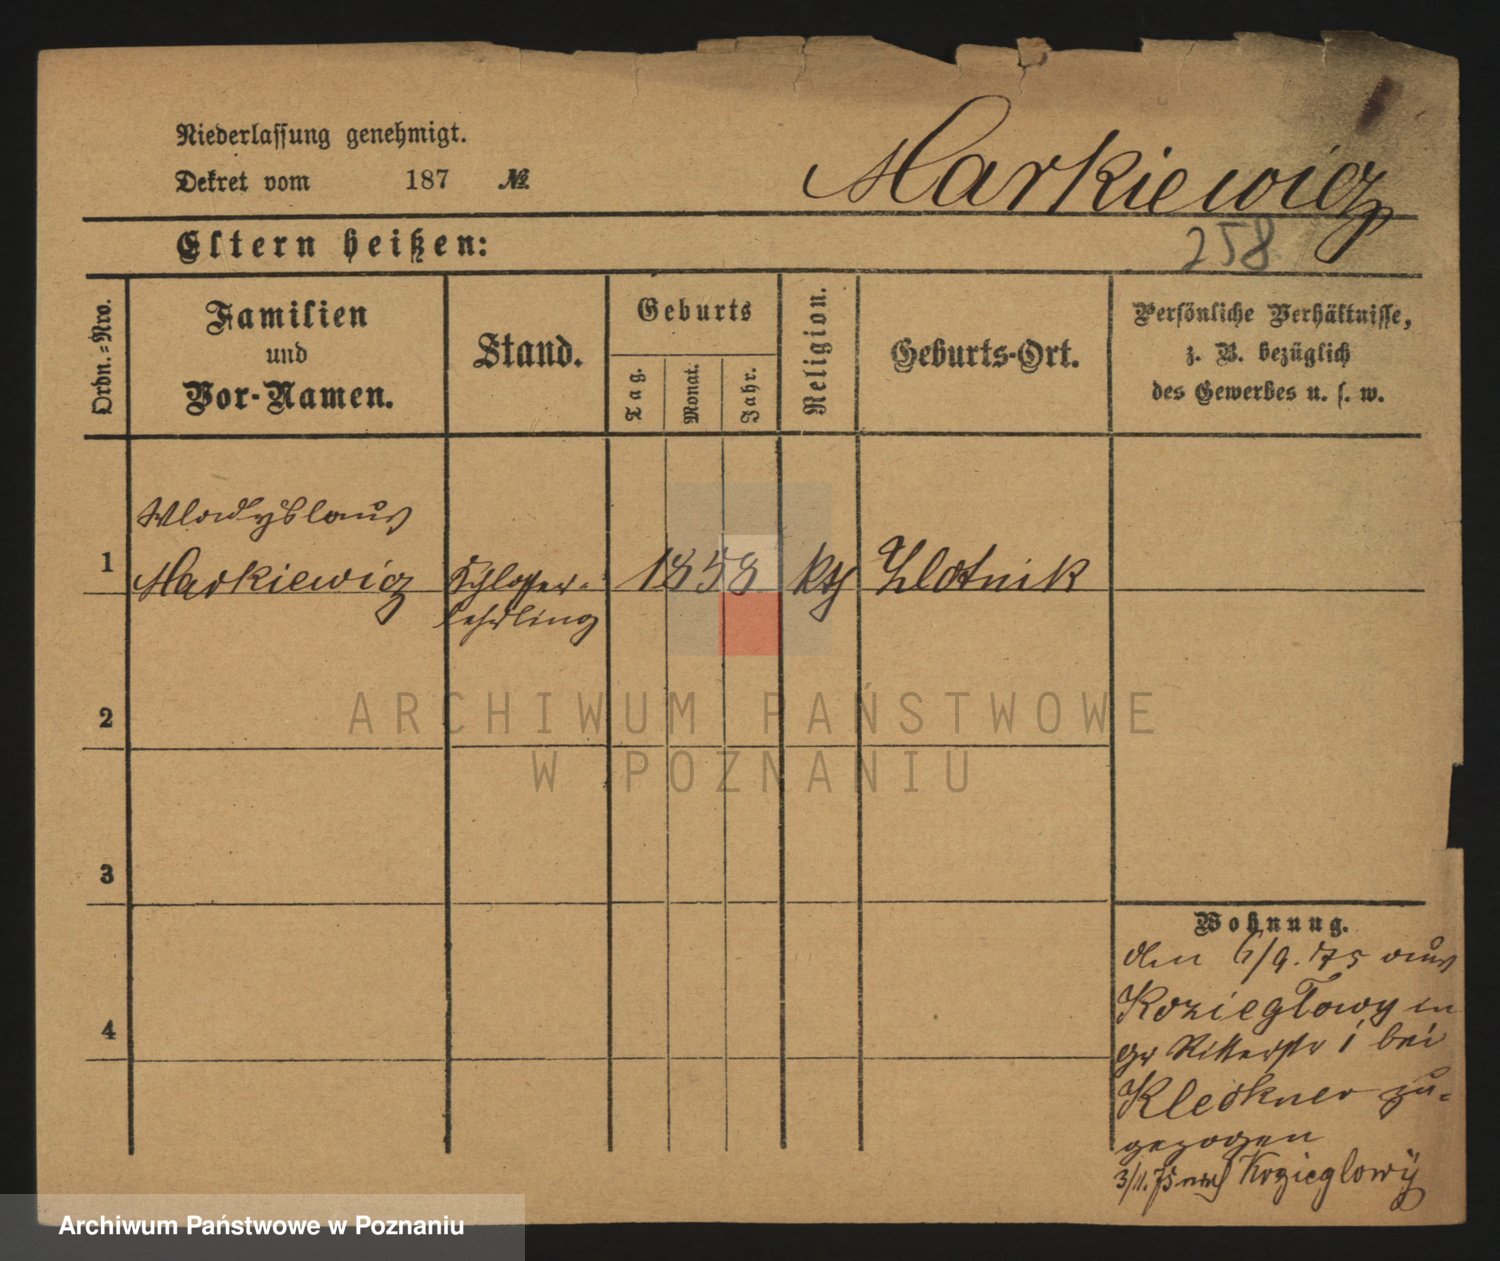 Niederlassung genehmigt.
Dekret vom 187 №
Markiewicz
Eltern heißen:
258
Ordn.-Nro.
Familien
und
Vor-Namen.
Stand.
Geburts
Tag.
Monat.
Jahr.
Religion.
Geburts-Ort.
Persönliche Verhältnisse,
z. B. bezüglich
des Gewerbes u. s. w.
Wladyslaus
1 Markiewicz Schlosser- 1858 kth Zlotnik
lehrling
2
ARCHIWUM PAŃSTWOWE
W POZNANIU
3
4
Wohnung.
den 6/9. 75 aus
Koziegłowy in
gr Ritterstr 1 bei
Kleckner zu-
gezogen
3/11. 75 nach Kozieglowy
Archiwum Państwowe w Poznaniu